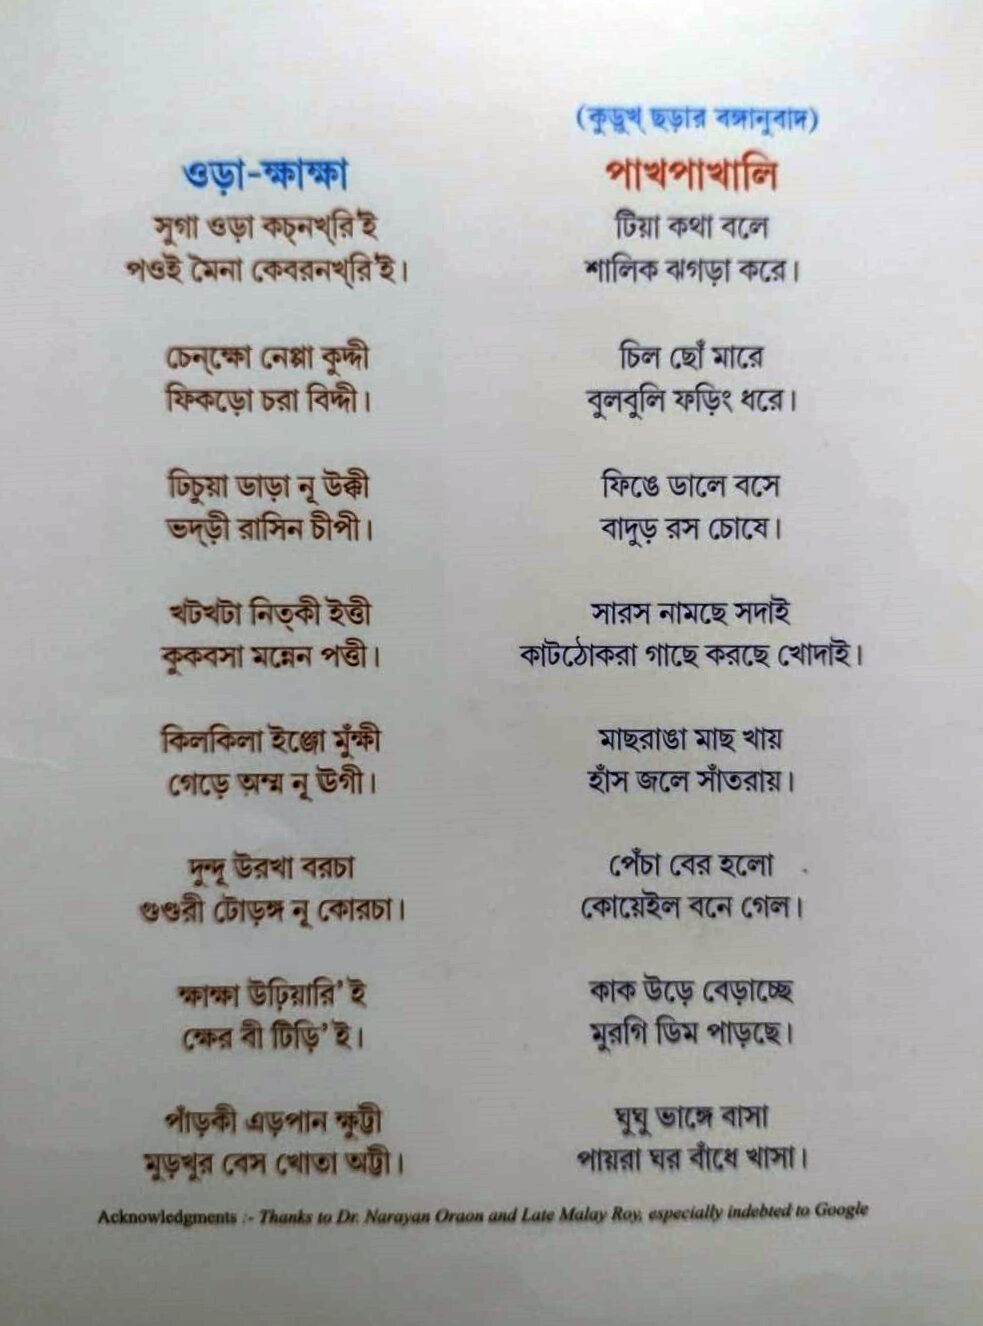 (কুড়ুখ্ ছড়ার বঙ্গানুবাদ)
ওড়া-ক্ষাক্ষা
সুগা ওড়া কচ্‌নখ্‌রি'ই
পওই মৈনা কেবরনখ্‌রি'ই।
চেন্‌ক্ষো নেপ্লা কুদ্দী
ফিকড়ো চরা বিদ্দী।
ঢিচুয়া ডাড়া নূ উক্কী
ভদ্‌ড়ী রাসিন চীপী।
খটখটা নিত্‌কী ইত্তী
কুকবসা মন্নেন পত্তী।
কিলকিলা ইঞ্জো মুঁক্ষী
গেড়ে অম্ম নূ ঊগী।
দুন্দূ উরখা বরচা
গুণ্ডরী টোড়ঙ্গ নূ কোরচা।
ক্ষাক্ষা উঢ়িয়ারি' ই
ক্ষের বী টিড়ি' ই।
পাঁড়কী এড়পান ক্ষুট্টী
মুড়খুর বেস খোতা অট্টী।
পাখপাখালি
টিয়া কথা বলে
শালিক ঝগড়া করে।
চিল ছোঁ মারে
বুলবুলি ফড়িং ধরে।
ফিঙে ডালে বসে
বাদুড় রস চোষে।
সারস নামছে সদাই
কাটঠোকরা গাছে করছে খোদাই।
মাছরাঙা মাছ খায়
হাঁস জলে সাঁতরায়।
পেঁচা বের হলো
কোয়েইল বনে গেল।
কাক উড়ে বেড়াচ্ছে
মুরগি ডিম পাড়ছে।
ঘুঘু ভাঙ্গে বাসা
পায়রা ঘর বাঁধে খাসা।
Acknowledgments :- Thanks to Dr. Narayan Oraon and Late Malay Roy, especially indebted to Google